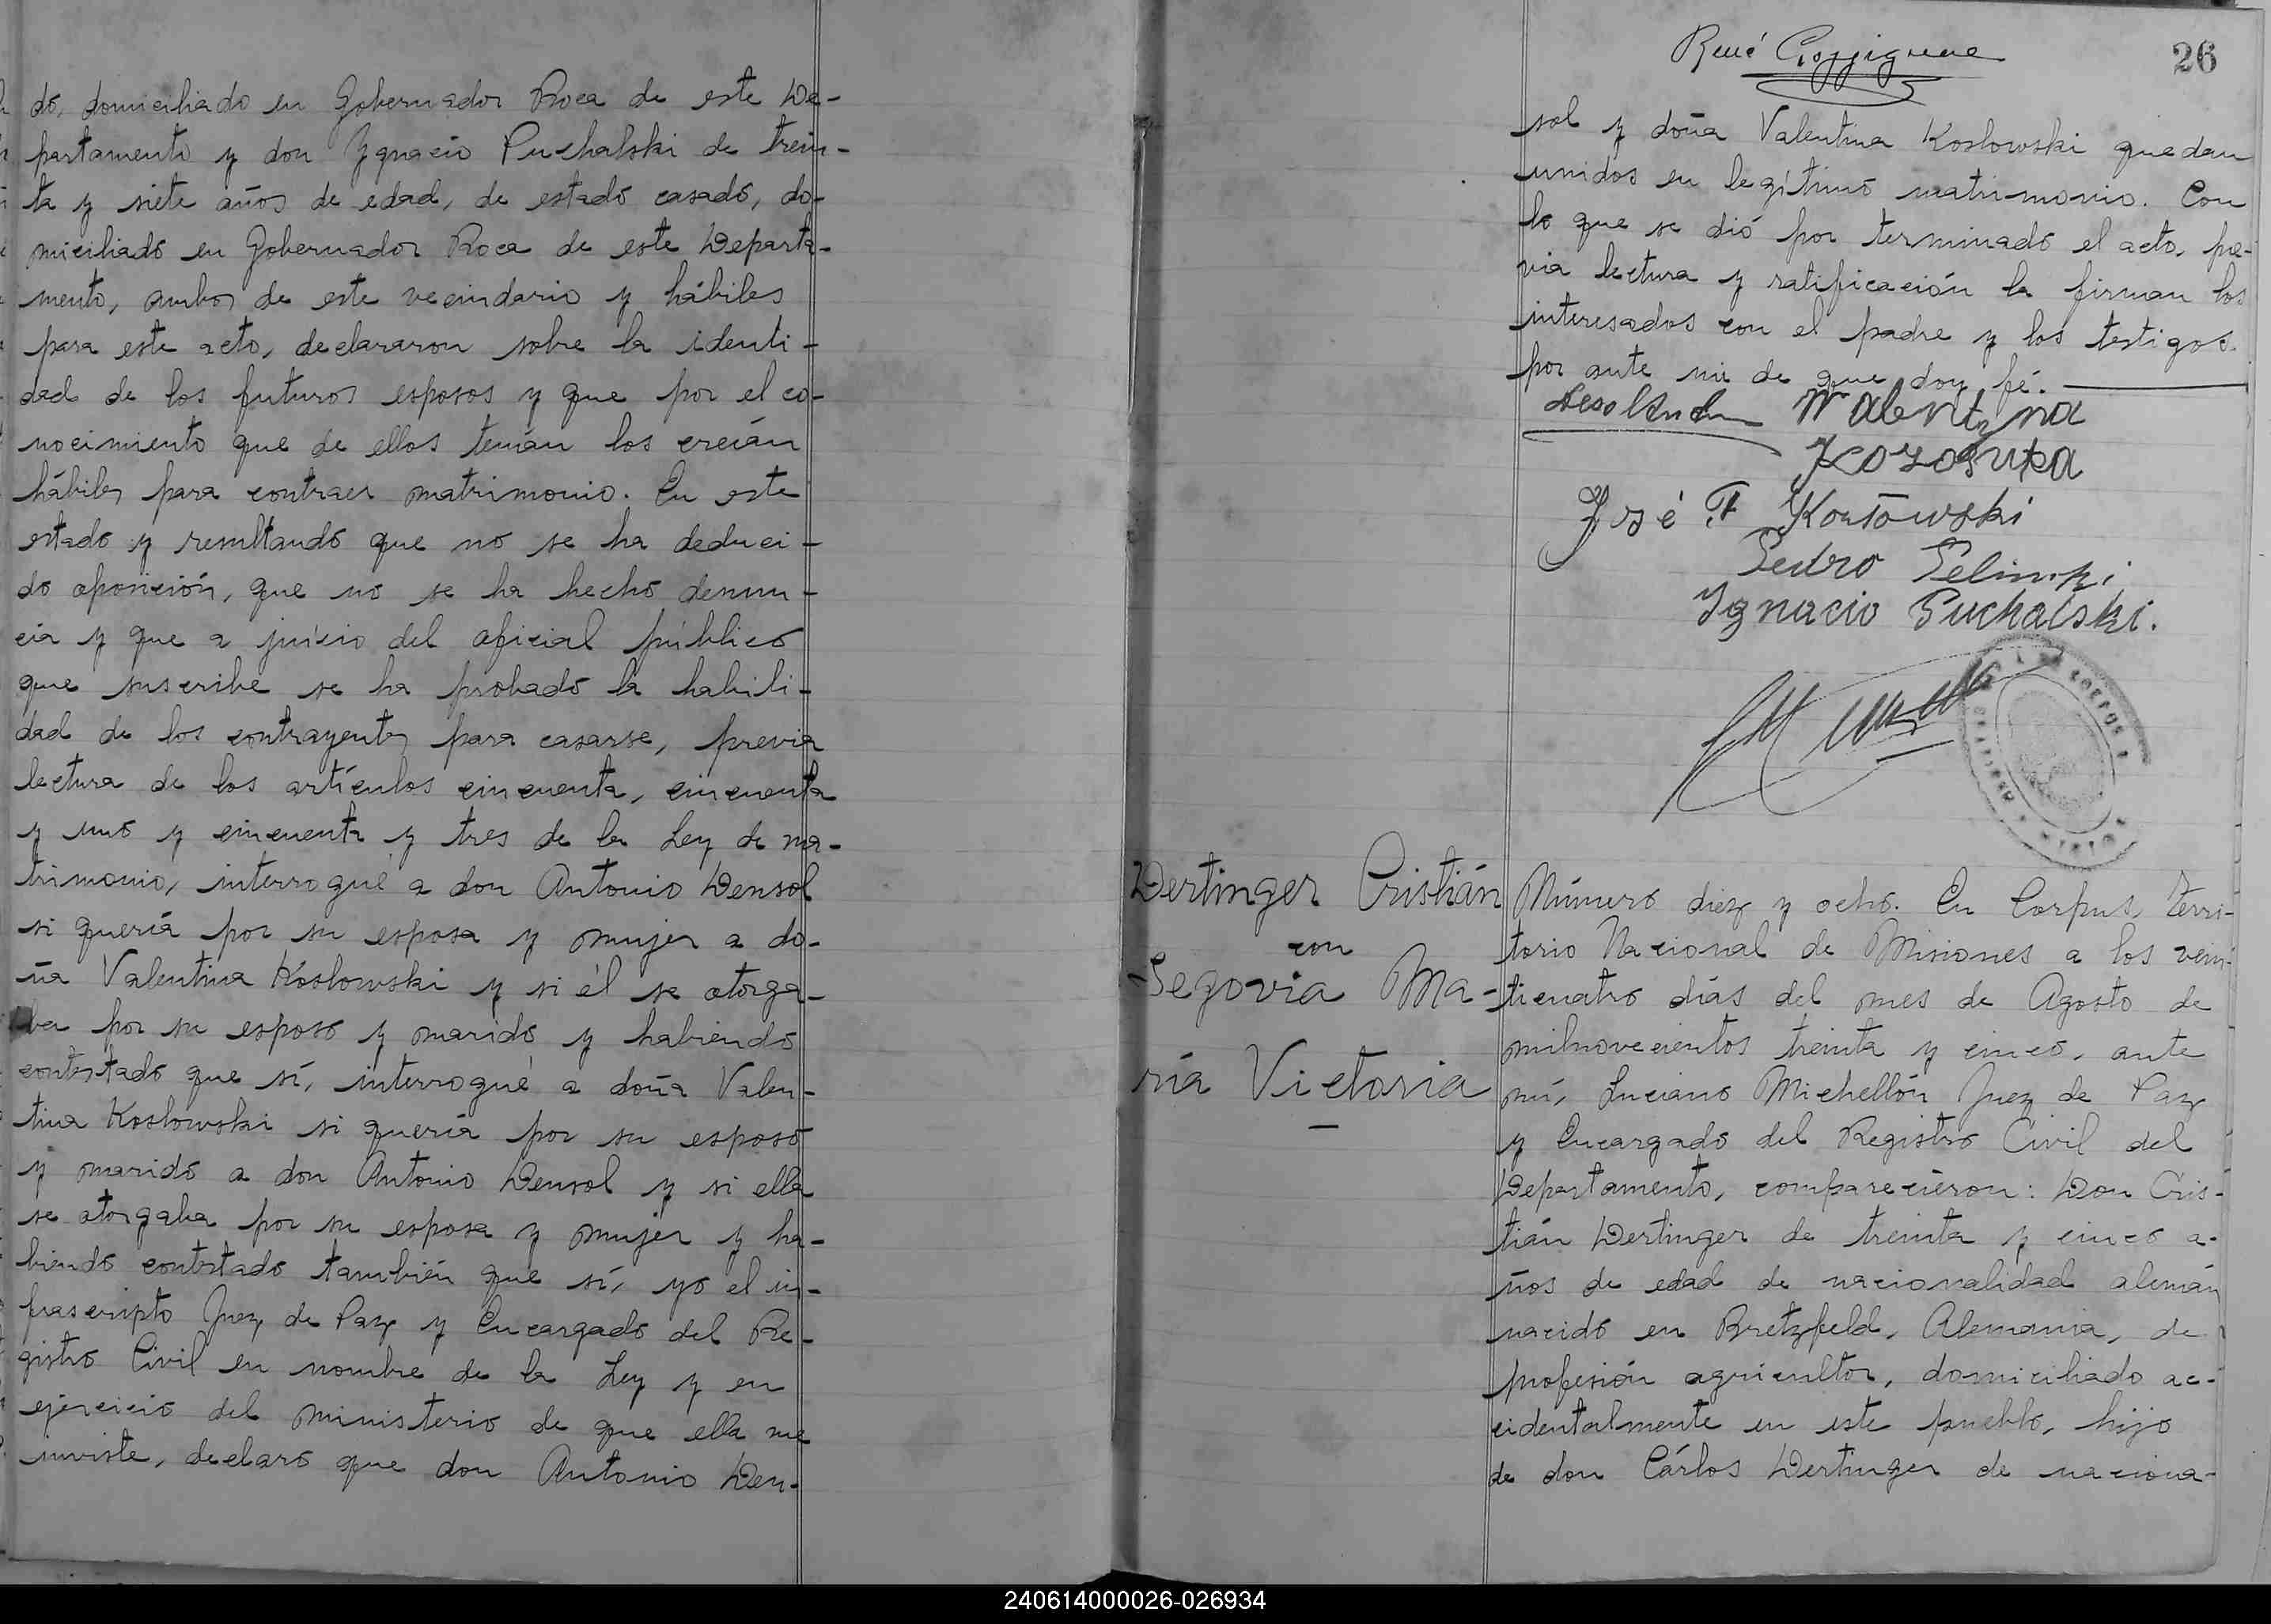 do, domiciliado en Gobernador Roca de este De-
partamento y don Ygnacio Puchalski de trein-
ta y siete años de edad, de estado casado, do-
miciliado en Gobernador Roca de este Departa-
mento, ambos de este vecindario y hábiles
para este acto, declararon sobre la identi-
dad de los futuros esposos y que por el co-
nocimiento que de ellos tenían los creían
hábiles para contraer matrimonio. En este
estado y resultando que no se ha deduci-
do oposición, que no se ha hecho denun-
cia y que a juicio del oficial público
que suscribe se ha probado la habili-
dad de los contrayentes para casarse, previa
lectura de los artículos cincuenta, cincuenta
y uno y cincuenta y tres de la Ley de ma-
trimonio, interrogué a don Antonio Densol
si quería por su esposa y mujer a do-
ña Valentina Koslowski y si él se otorga-
ba por su esposo y marido y habiendo
contestado que sí, interrogué a doña Valen-
tina Koslowski si quería por su esposo
y marido a don Antonio Densol y si ella
se otorgaba por su esposa y mujer y ha-
biendo contestado también que sí, yo el in-
frascripto Juez de Paz y Encargado del Re-
gistro Civil en nombre de la Ley y en
ejercicio del ministerio de que ella me
inviste, declaro que don Antonio Den-
René
26
sol y doña Valentina Koslowski quedan
unidos en legítimo matrimonio. Con
lo que se dió por terminado el acto, pre-
via lectura y ratificación la firman los
interesados con el padre y los testigos
por ante mi de que doy fé.
Walentyna
José F Kozłowski
Pedro
Ignacio Puchalski.
Dertinger Cristián
con
Segovia Ma-
ría Victoria
Número diez y ocho. En Corpus, Terri-
torio Nacional de Misiones a los vein-
ticuatro días del mes de Agosto de
milnovecientos treinta y cinco, ante
mí, Luciano Michellón Juez de Paz
y Encargado del Registro Civil del
Departamento, comparecieron: Don Cris-
tián Dertinger de treinta y cinco a-
ños de edad de nacionalidad alemán
nacido en Bretzfeld, Alemania, de
profesión agricultor, domiciliado ac-
cidentalmente en este pueblo, hijo
de don Cárlos Dertinger de naciona-
240614000026-026934